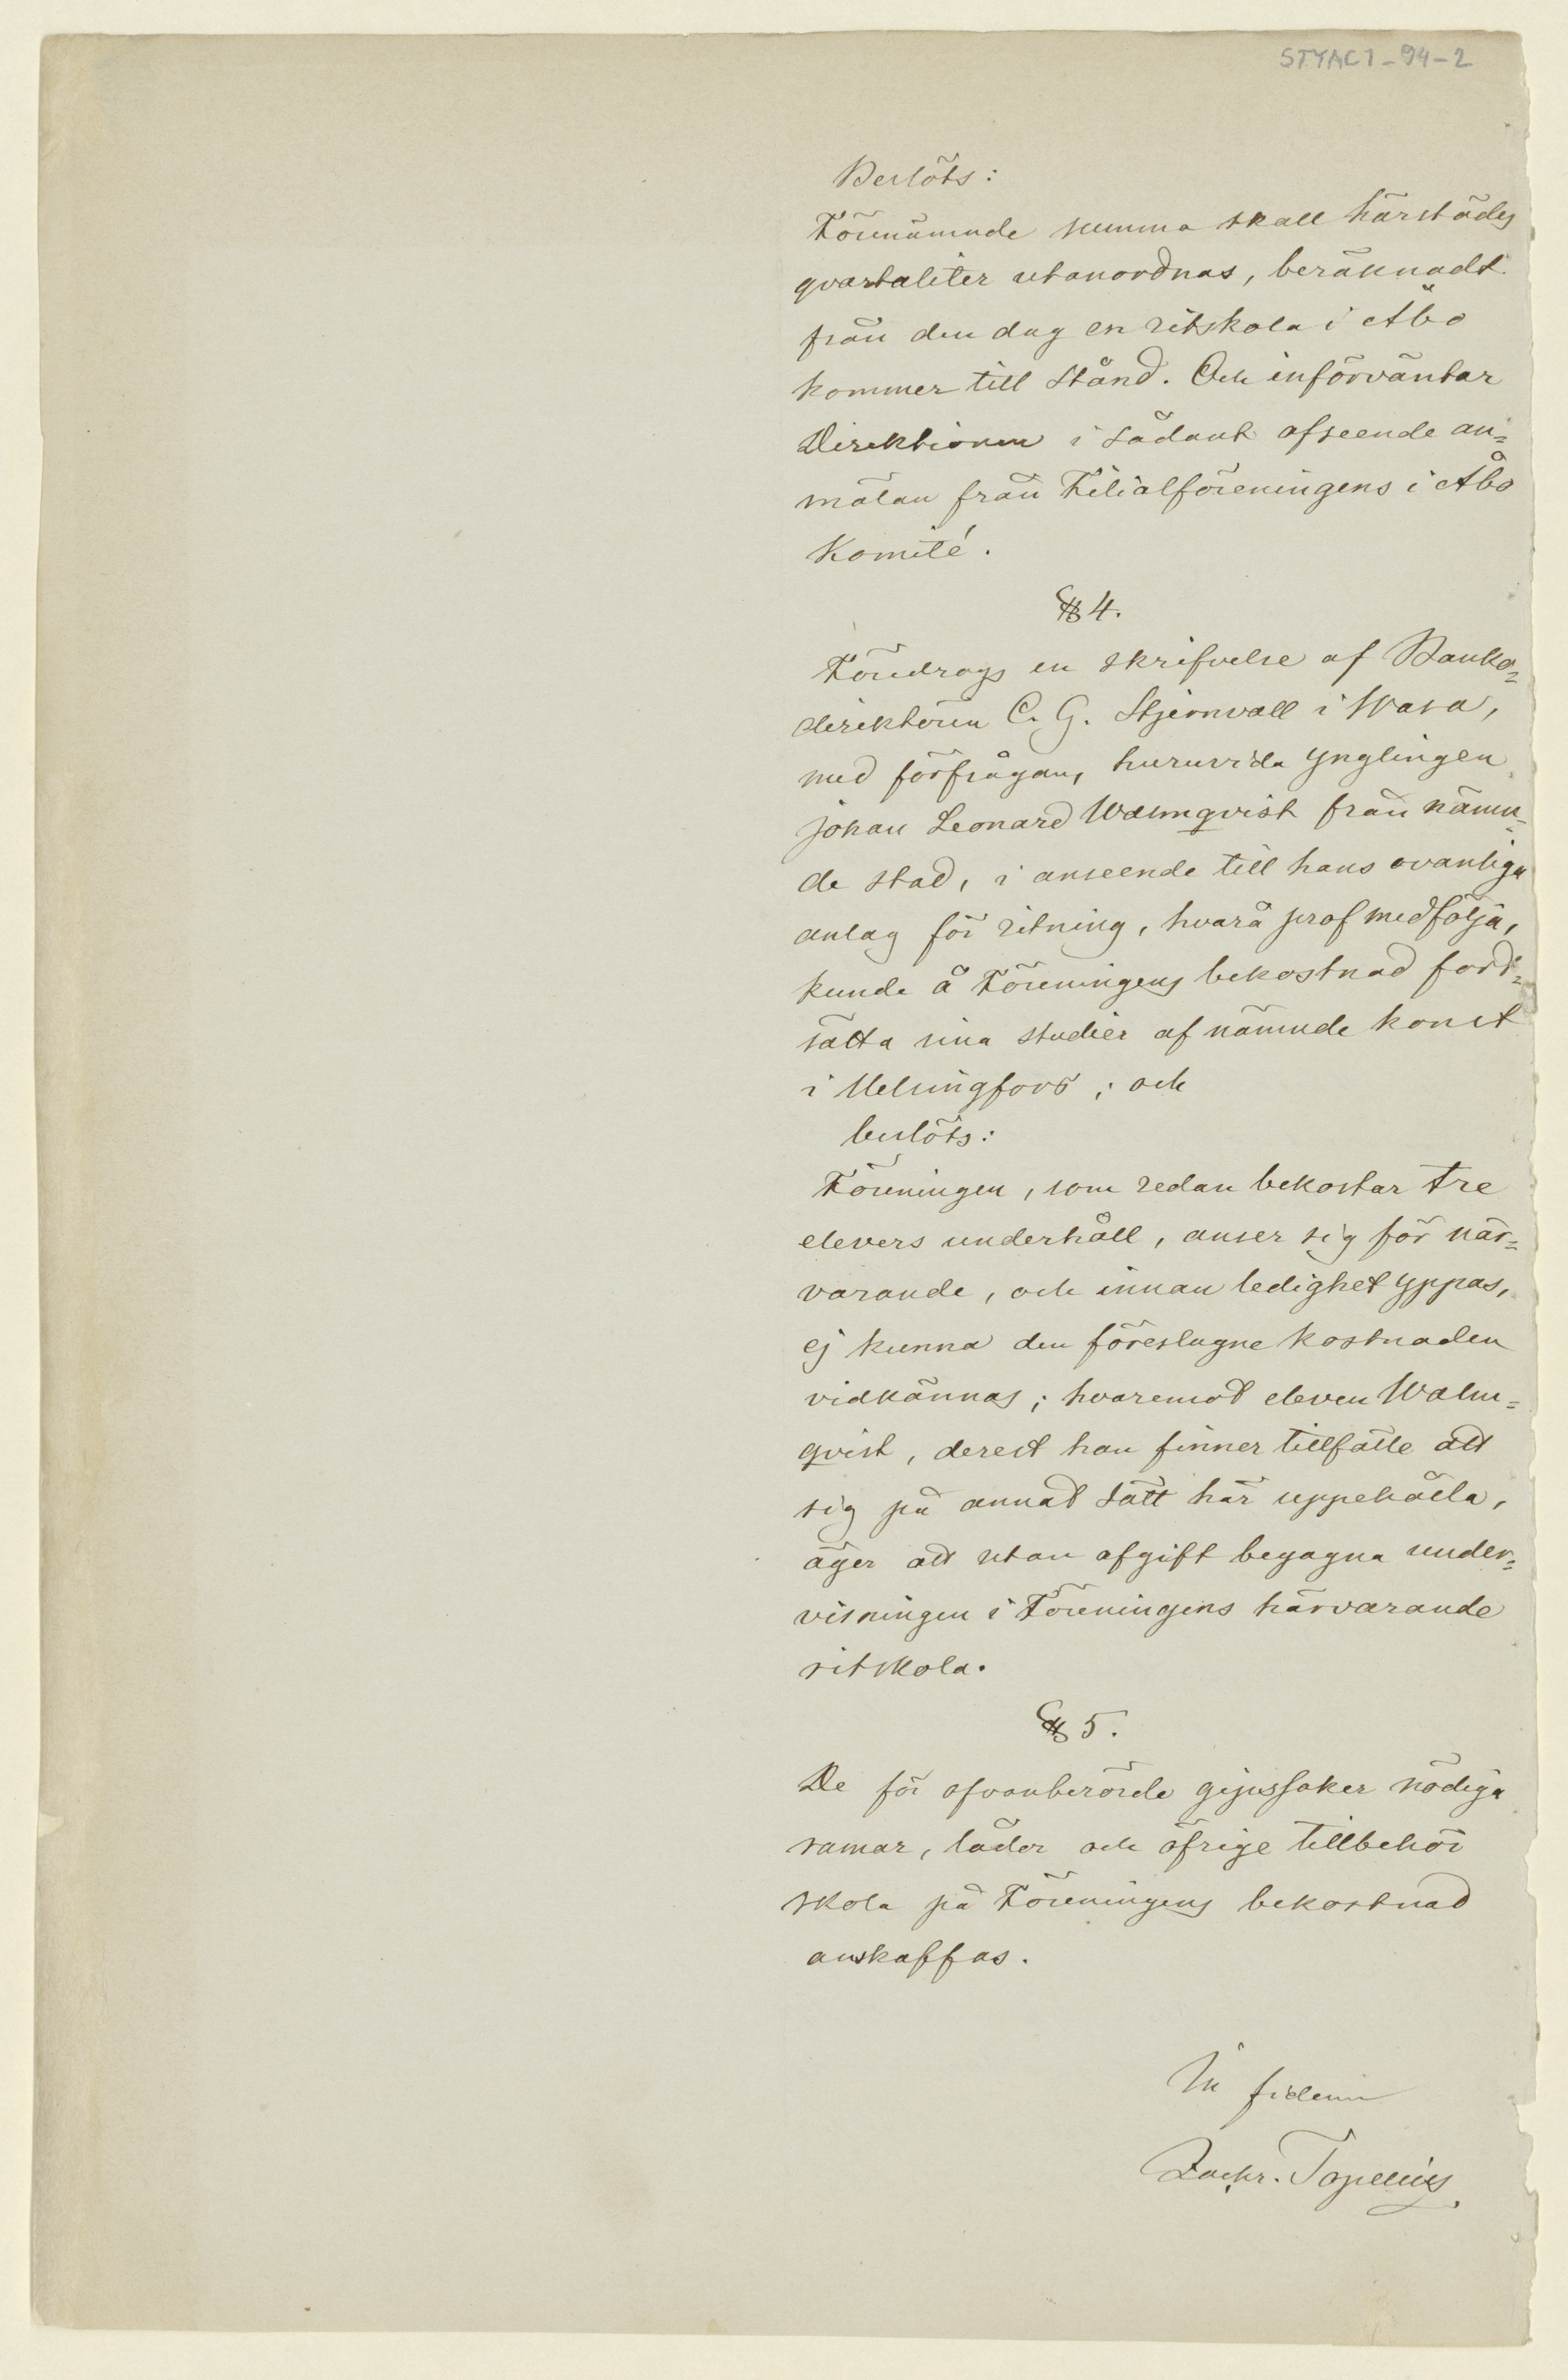 STYAC1-94-2
Beslöts:
Förenämnde summa skall härstädes
qvartaliter utanordnas, beräknadt
från den dag en ritskola i Åbo
kommer till stånd. Och införväntar
Direktionen i sådant afseende an=
mälan från Filialföreningens i Åbo
Komité.
§ 4.
Föredrogs en skrifvelse af Banko=
direktören C. G. Stjernvall i Wasa,
med förfrågan, huruvida ynglingen
Johan Leonard Walmqvist från nämn=
de stad, i anseende till hans ovanliga
anlag för ritning, hvarå prof medfölja,
kunde å Föreningens bekostnad fort=
sätta sina studier af nämnde konst
i Helsingfors; och
beslöts:
Föreningen, som redan bekostar tre
elevers underhåll, anser sig för när=
varande, och innan ledighet yppas,
ej kunna den föreslagne kostnaden
vidkännas; hvaremot eleven Walm=
qvist, derest han finner tillfälle att
sig på annat sätt här uppehålla,
äger att utan afgift begagna under=
visningen i Föreningens härvarande
ritskola.
§ 5.
De för ofvanberörde gipssaker nödiga
ramar, lådor och öfrige tillbehör
skola på Föreningens bekostnad
anskaffas.
In fidem
Zachr. Topelius.